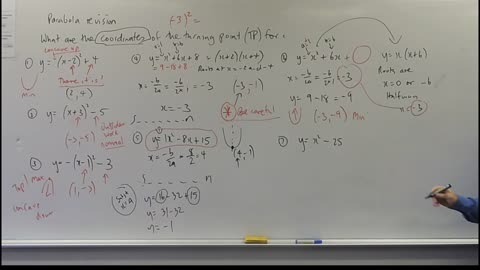 Parabola revision
(-3)² =
What are the coordinates of the turning point (TP) for:
Concave up
① y = (x-2)² + 4
There it is!
(2, 4)
Min
② y = (x+3)² - 5
(-3, -5)
③ y = -(x- )² - 3
Max
(1, -3)
concave down
④ y = x² + 6x + 8 = (x+2)(x+4)
= 9 - 18 + 8
Roots at x = -2 and -4
x = -b/2a = -6/2×1 = -3
(-3, -1)
x = -3
Be careful!
⑤ y = 1x² - 8x + 15
x = -b/2a = 8/2 = 4
(4, -1)
y = 16 - 32 + 15
y = 31 - 32
y = -1
⑥ y = x² + 6x +
x = -b/2a = -6/2×1 = -3
y = 9 - 18 = -9
(-3, -9) Min
y = x(x+6)
Roots are
x = 0 or -6
Halfway
x = -3
⑦ y = x² - 25